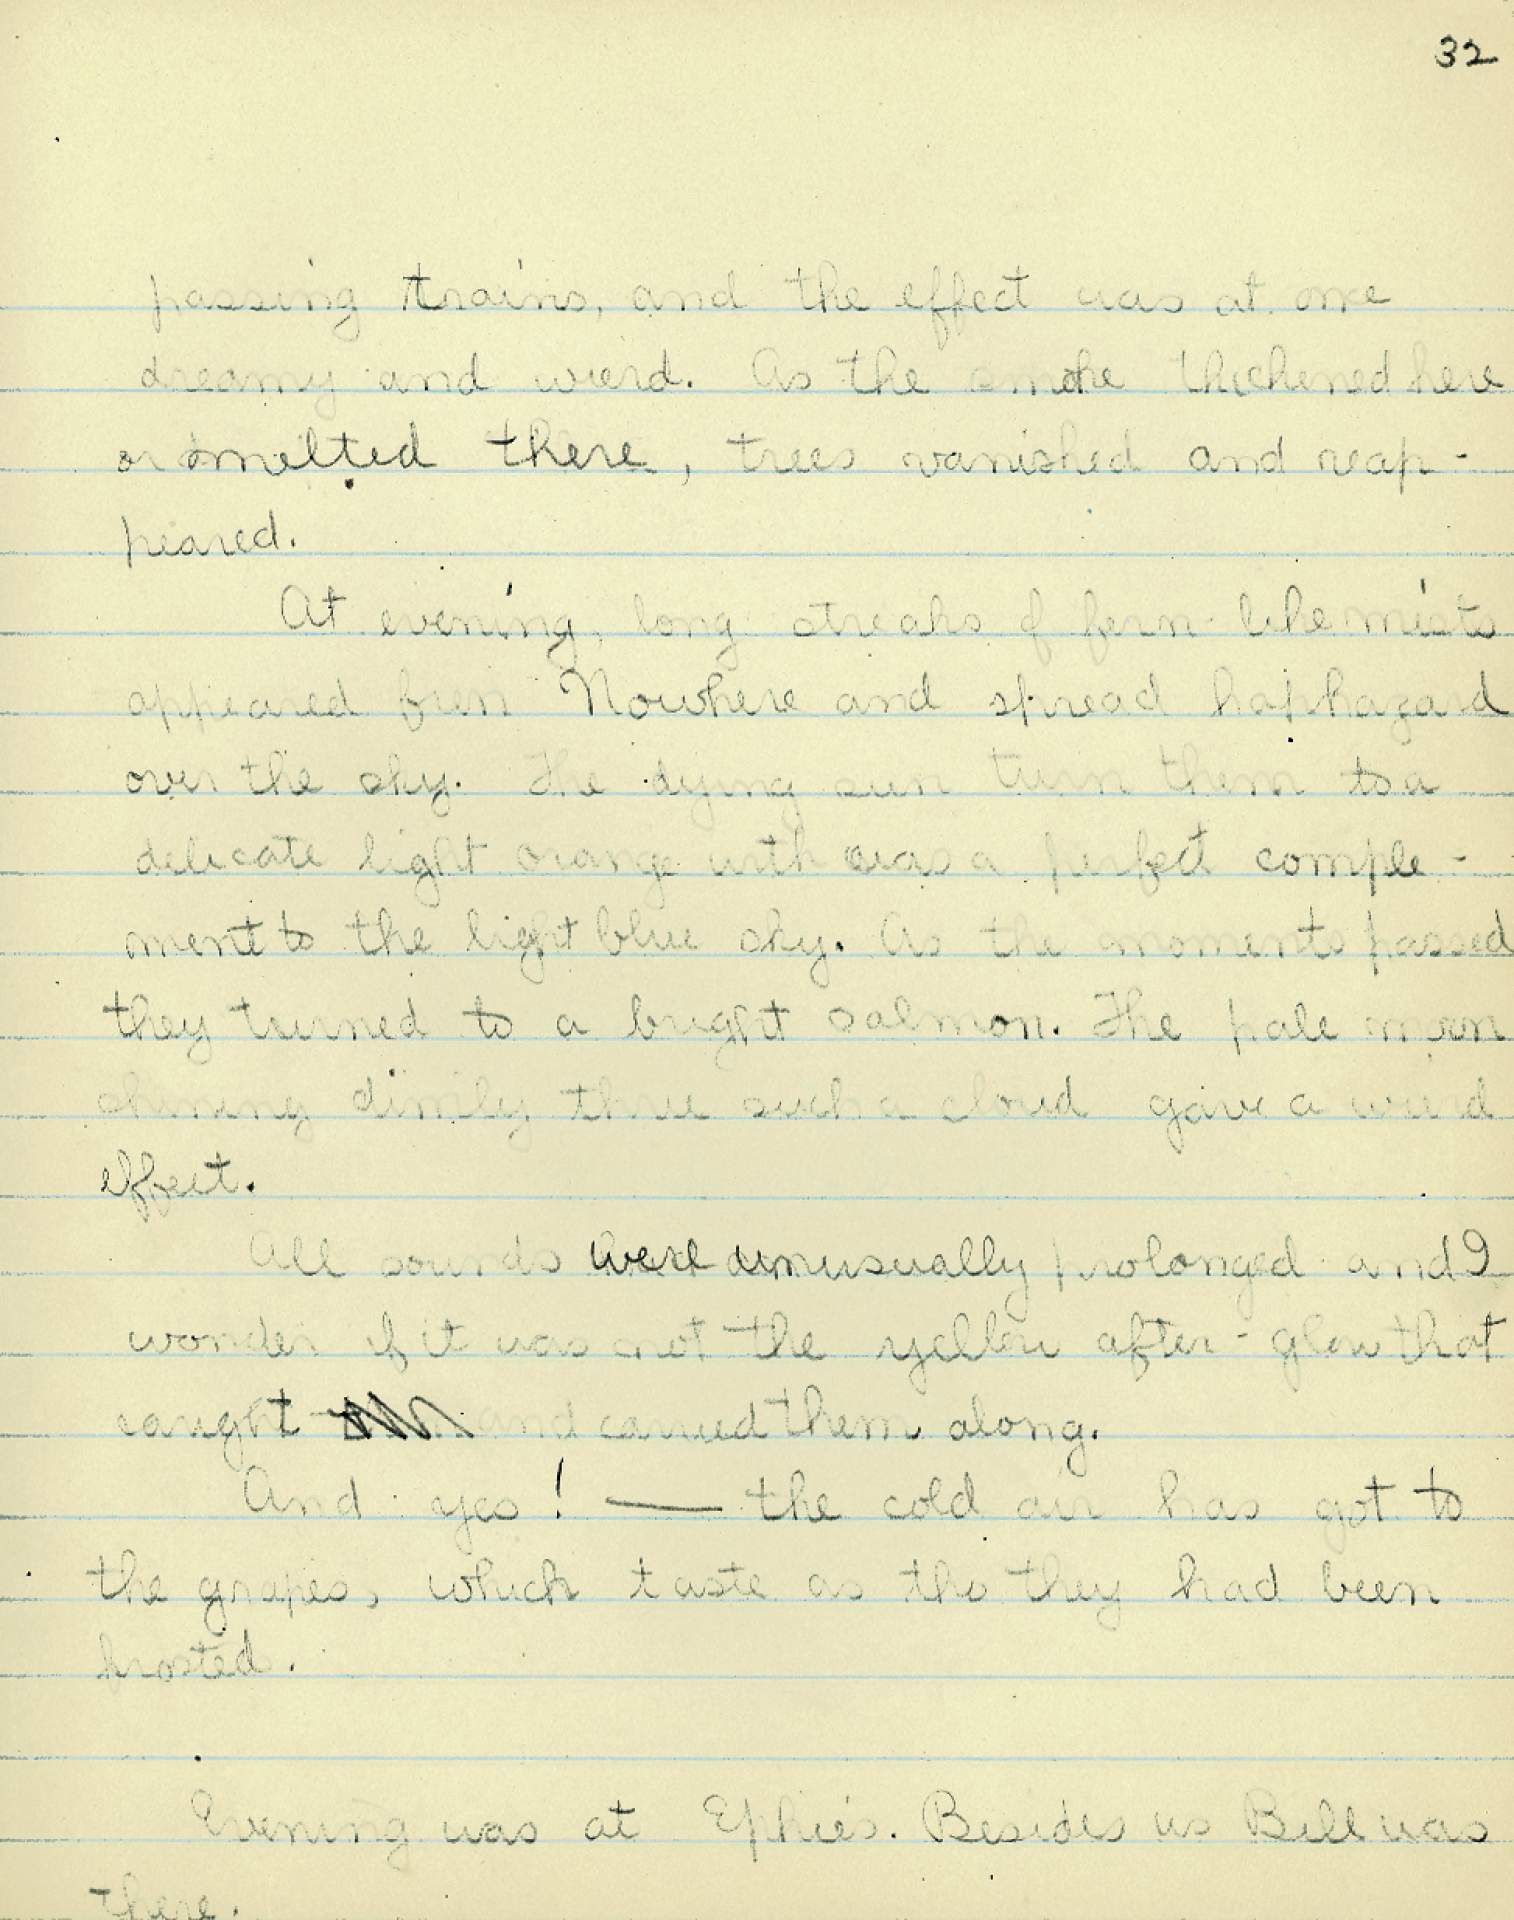 32
passing trains, and the effect was at once
dreamy and wierd. As the smoke thickened here
or melted there, trees vanished and reap-
peared.
At evening, long streaks of fern-like mists
appeared from Nowhere and spread haphazard
over the sky. The dying sun turn them to a
delicate light orange with was a perfect comple-
ment to the light blue sky. As the moments passed
they turned to a bright salmon. The pale moon
shining dimly thru such a cloud gave a wierd
effect.
All sounds were unusually prolonged and I
wonder if it was not the yellow after-glow that
caught and carried them along.
And yes! — the cold air has got to
the grapes, which taste as tho they had been
frosted.
Evening was at Ephie's. Besides us Bill was
there.